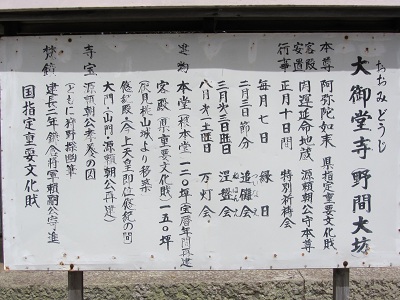 おおみどうじ
大御堂寺 野間大坊
本尊 阿弥陀如来 県指定重要文化財
客殿安置 開運延命地蔵 源頼朝公守本尊
行事 正月十日間 特別祈祷会
毎月七日 縁日
二月三日節分 追儺会
三月第三日曜日 涅槃会
八月第一土曜日 万灯会
建物 本堂(根本堂)一二〇坪(宝暦年間再建)
客殿(県重要文化財)一五〇坪
(伏見桃山城より移築)
大門・山門(源頼朝公再建)
寺宝 源頼朝公
(ともに狩野探幽筆)
梵鐘 建長二年鎌倉将軍頼嗣公寄進
国指定重要文化財